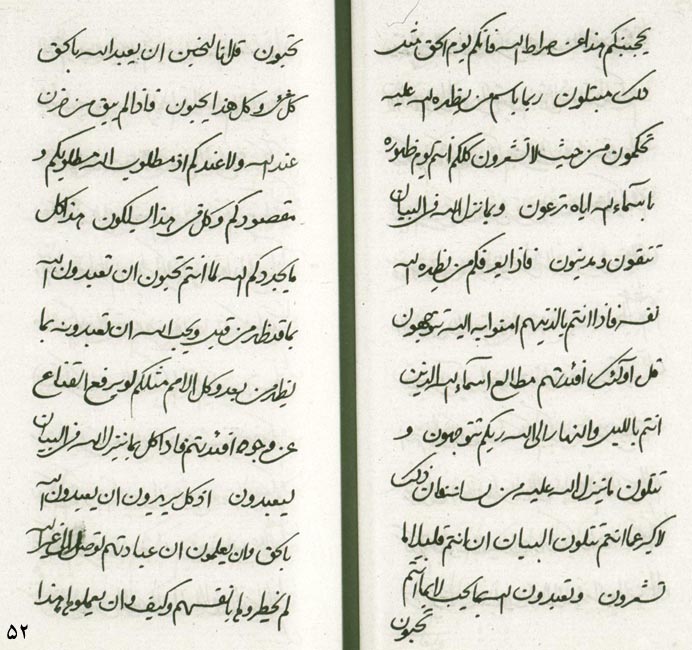 عن صراط الله فانكم يوم الحق مثل
ذلك مبتلون ربما باسم من يظهره الله عليه
تحكمون من حيث لا تشعرون كلكم انتم يوم ظهوره
باسماء الله اياه تدعون وبما نزل الله في البيان
تتقون وتدينون فاذا يعرفكم من يظهره الله
نفسه فاذا انتم بالذينهم امنوا به اليه تتوجهون
قل اولئك افئدتهم مطالع اسماء الله الذين
انتم بالليل والنهار الى الله ربكم تتوجهون و
تتلون ما ينزل الله عليه من لسانه فان ذلك
لاكبر عما انتم تتلون البيان ان انتم قليلا ما
تشعرون وتعبدون الله بما يحب لا بما انتم
تحبون
تحبون قل انا لنحبن ان يعبد الله بالحق
كل شيء وكل هذا يحبون فاذا لم يبق من حزن
عند الله ولا عندكم اذ مطلوب الله مطلوبكم و
مقصودكم وكل في هذا ليسلكون هذا كل
ما يحدد كم الله لما انتم تحبون ان تعبدون الله
بما قد ظهر من قبل ويحب الله ان تعبدونه بما
يظهر من بعد وكل الامم مثلكم لو يرفع القناع
عن وجوه افئدتهم فاذا كل بما ينزل الله في البيان
ليعبدون اذ كل يريدون ان يعبدون الله
بالحق وان يعلمون ان عبادتهم توصل الى غير الله
لم يخطروها بانفسهم وكيف وان يعملوها هذا
٥٢